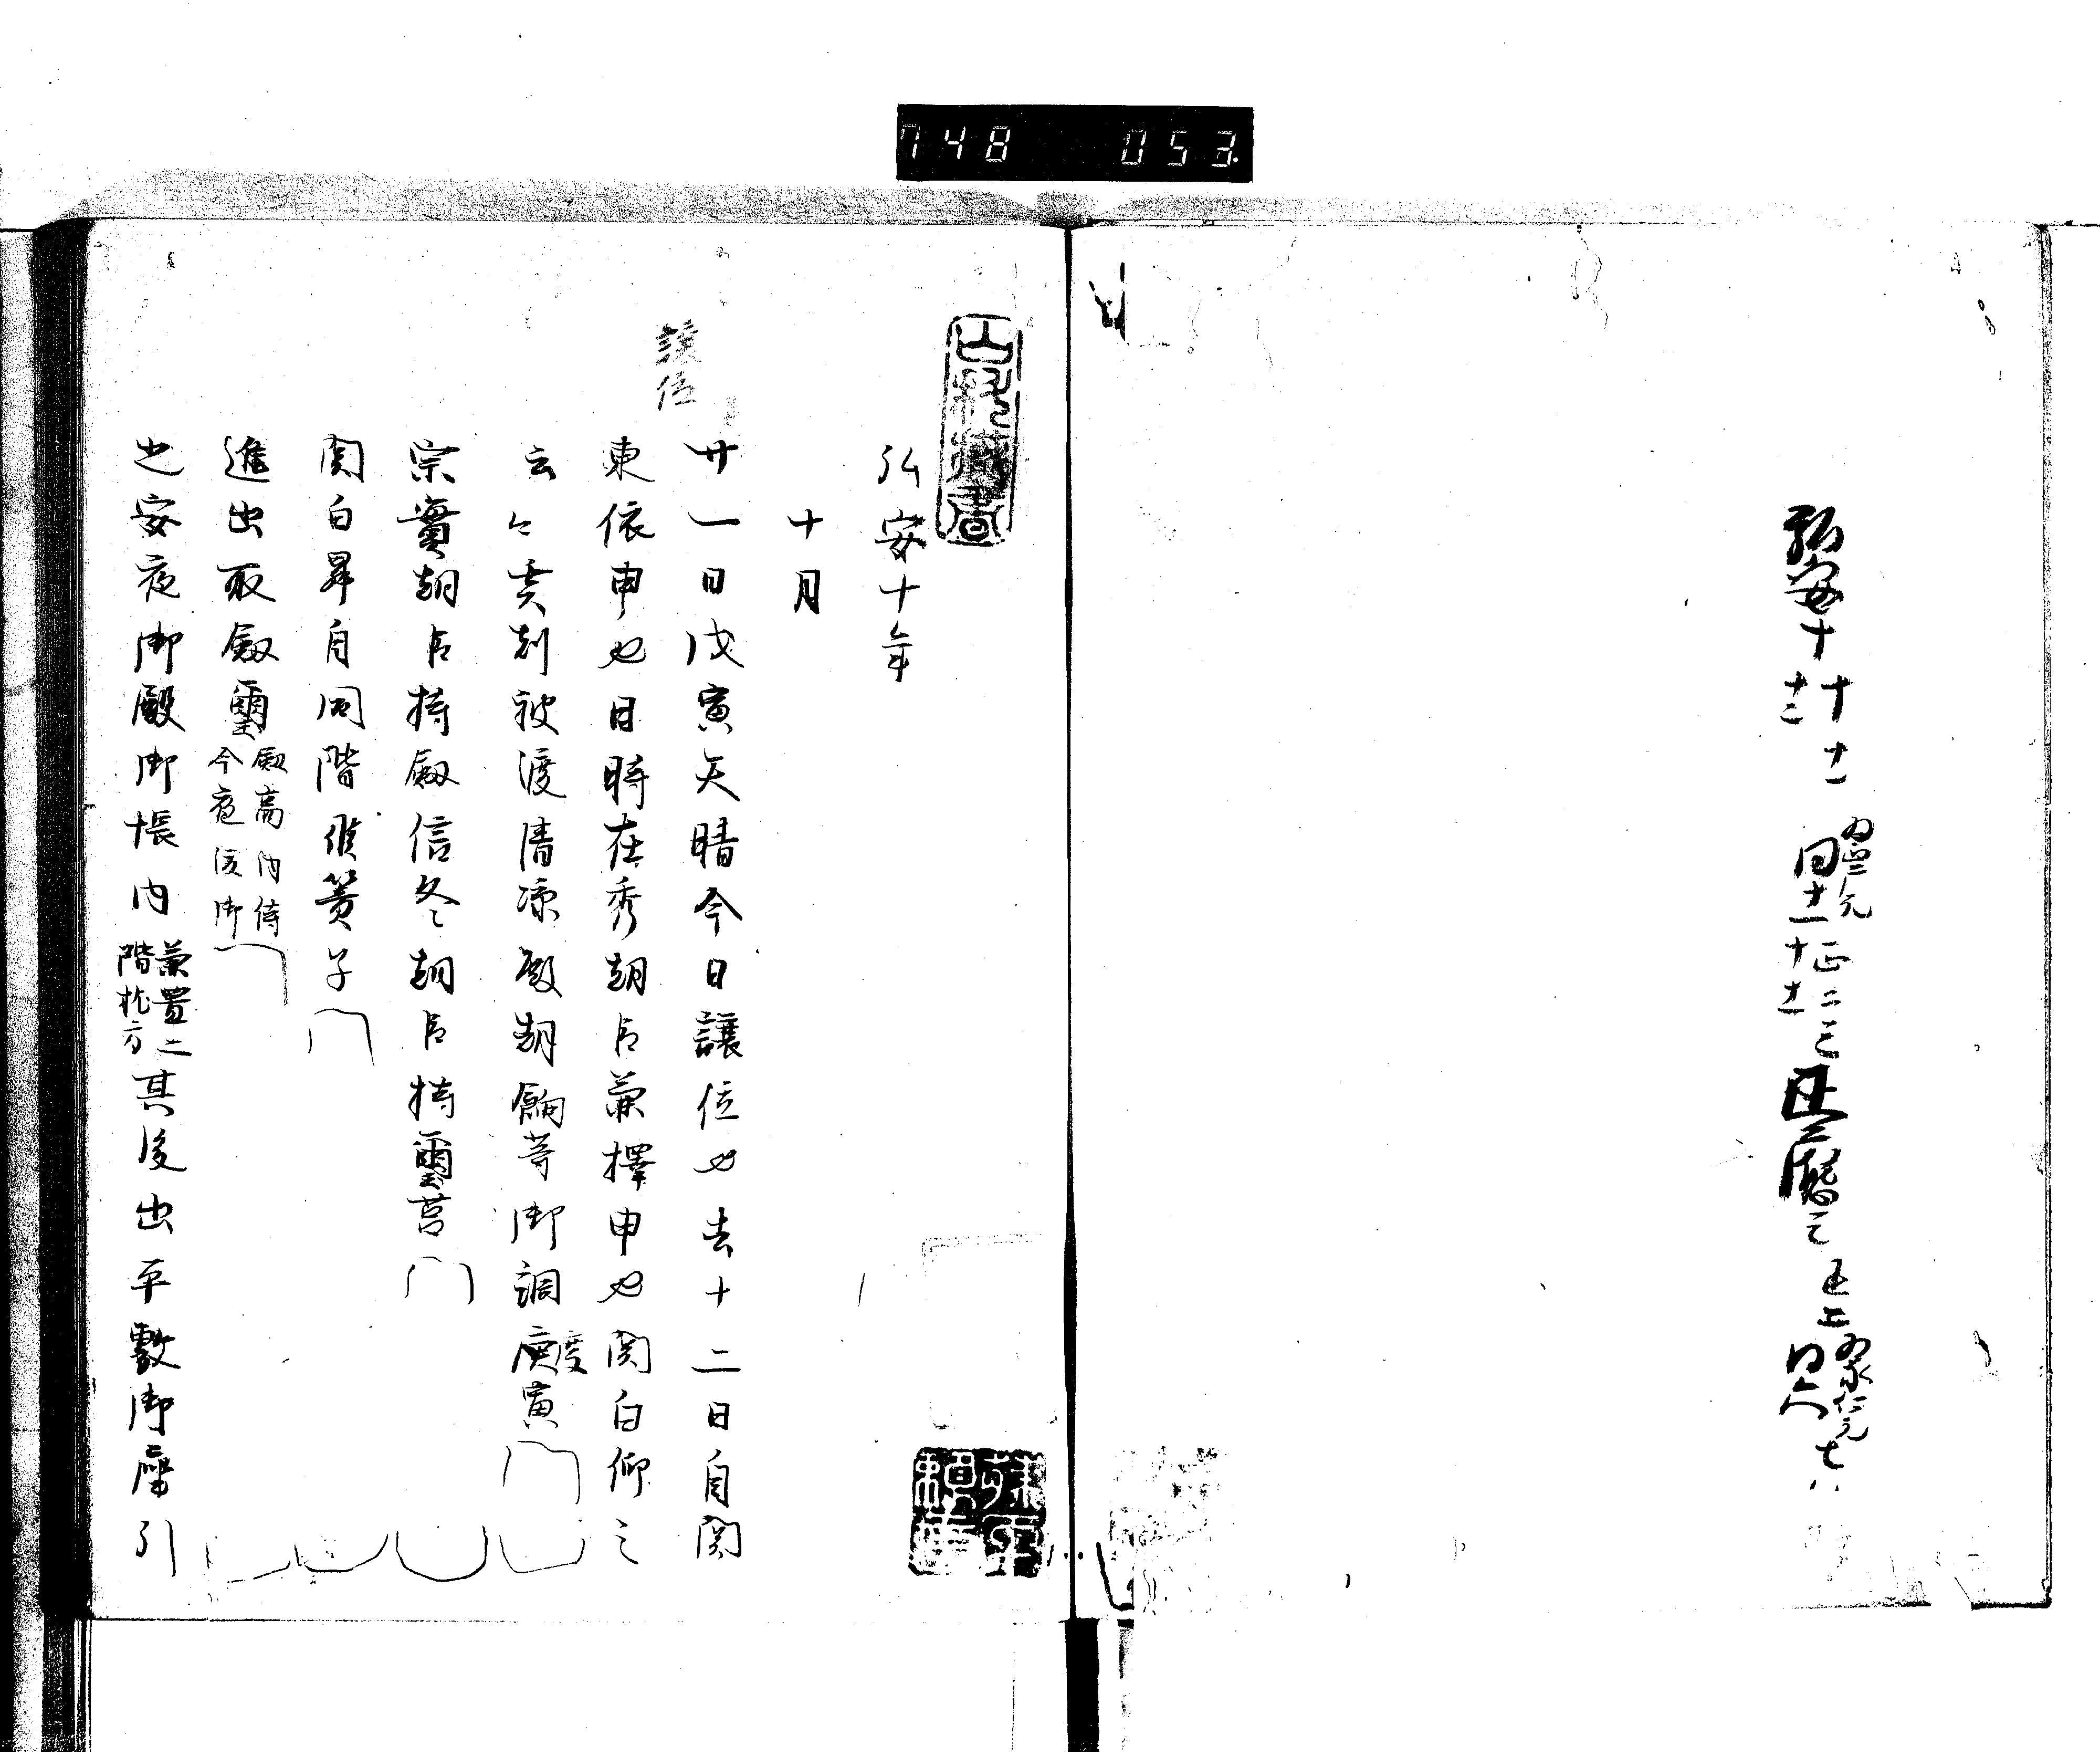 748 053
弘安十 十 十一
十二
同十一
正 二 三
十 十二
正應三 正 二
七 八
弘安十年
十月
譲位
廿一日戊寅天晴今日譲位也去十二日自関
東依申也日時在秀朝臣兼擇申也関白仰之
云々寅刻被渡清凉殿朝餉等御調度寅
宗實朝臣持劔信冬朝臣持璽筥
関白昇自同階候簀子
進出取劔璽劔高内侍
今夜後御
也安夜御殿御帳内兼置二
階枕方其後出平敷御座引